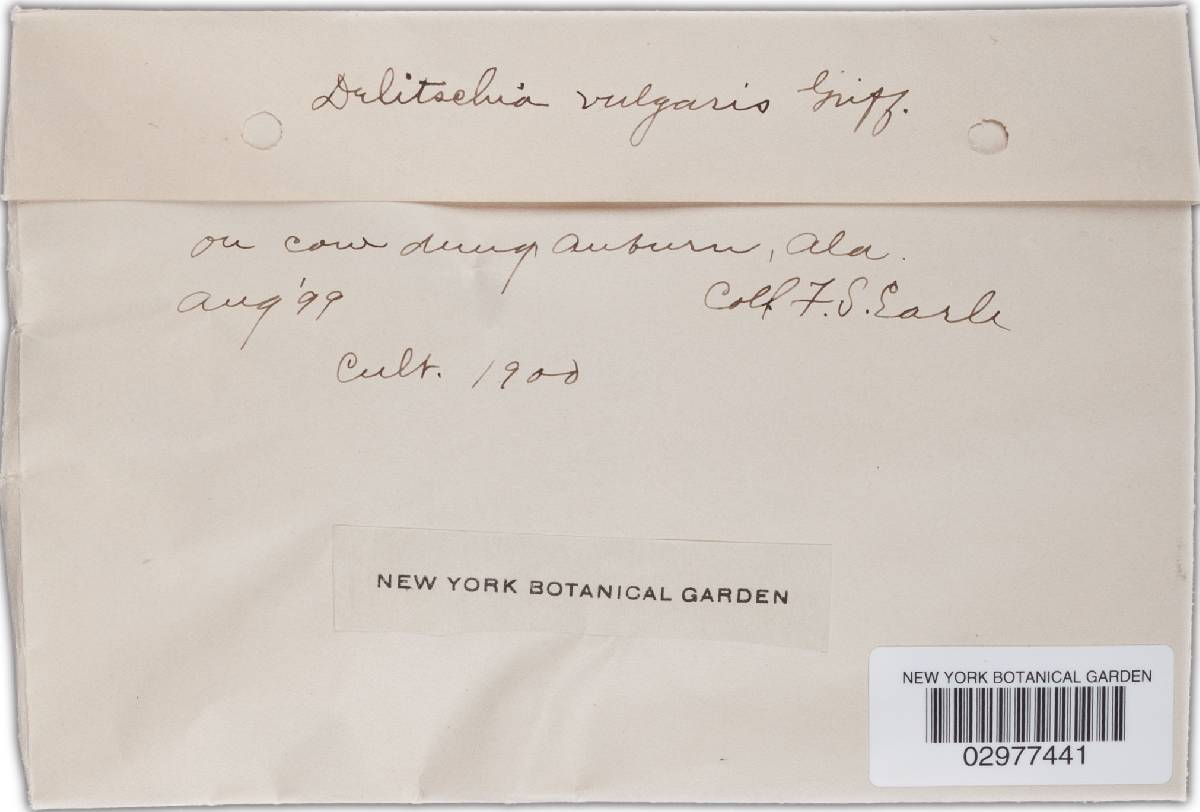 Delitschia vulgaris Griff.
on cow dung, Auburn, Ala.
Aug '99 Coll. F. S. Earle
Cult. 1900
NEW YORK BOTANICAL GARDEN
NEW YORK BOTANICAL GARDEN
02977441